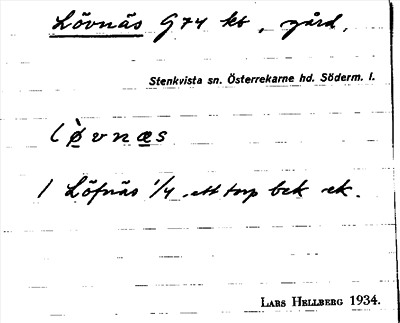 Lövnäs G74 kt, gård,
Stenkvista sn. Österrekarne hd. Söderm. l.
lø̀vnæs
1 Löfnäs 1/4 ett torp bek ek.
LARS HELLBERG 1934.